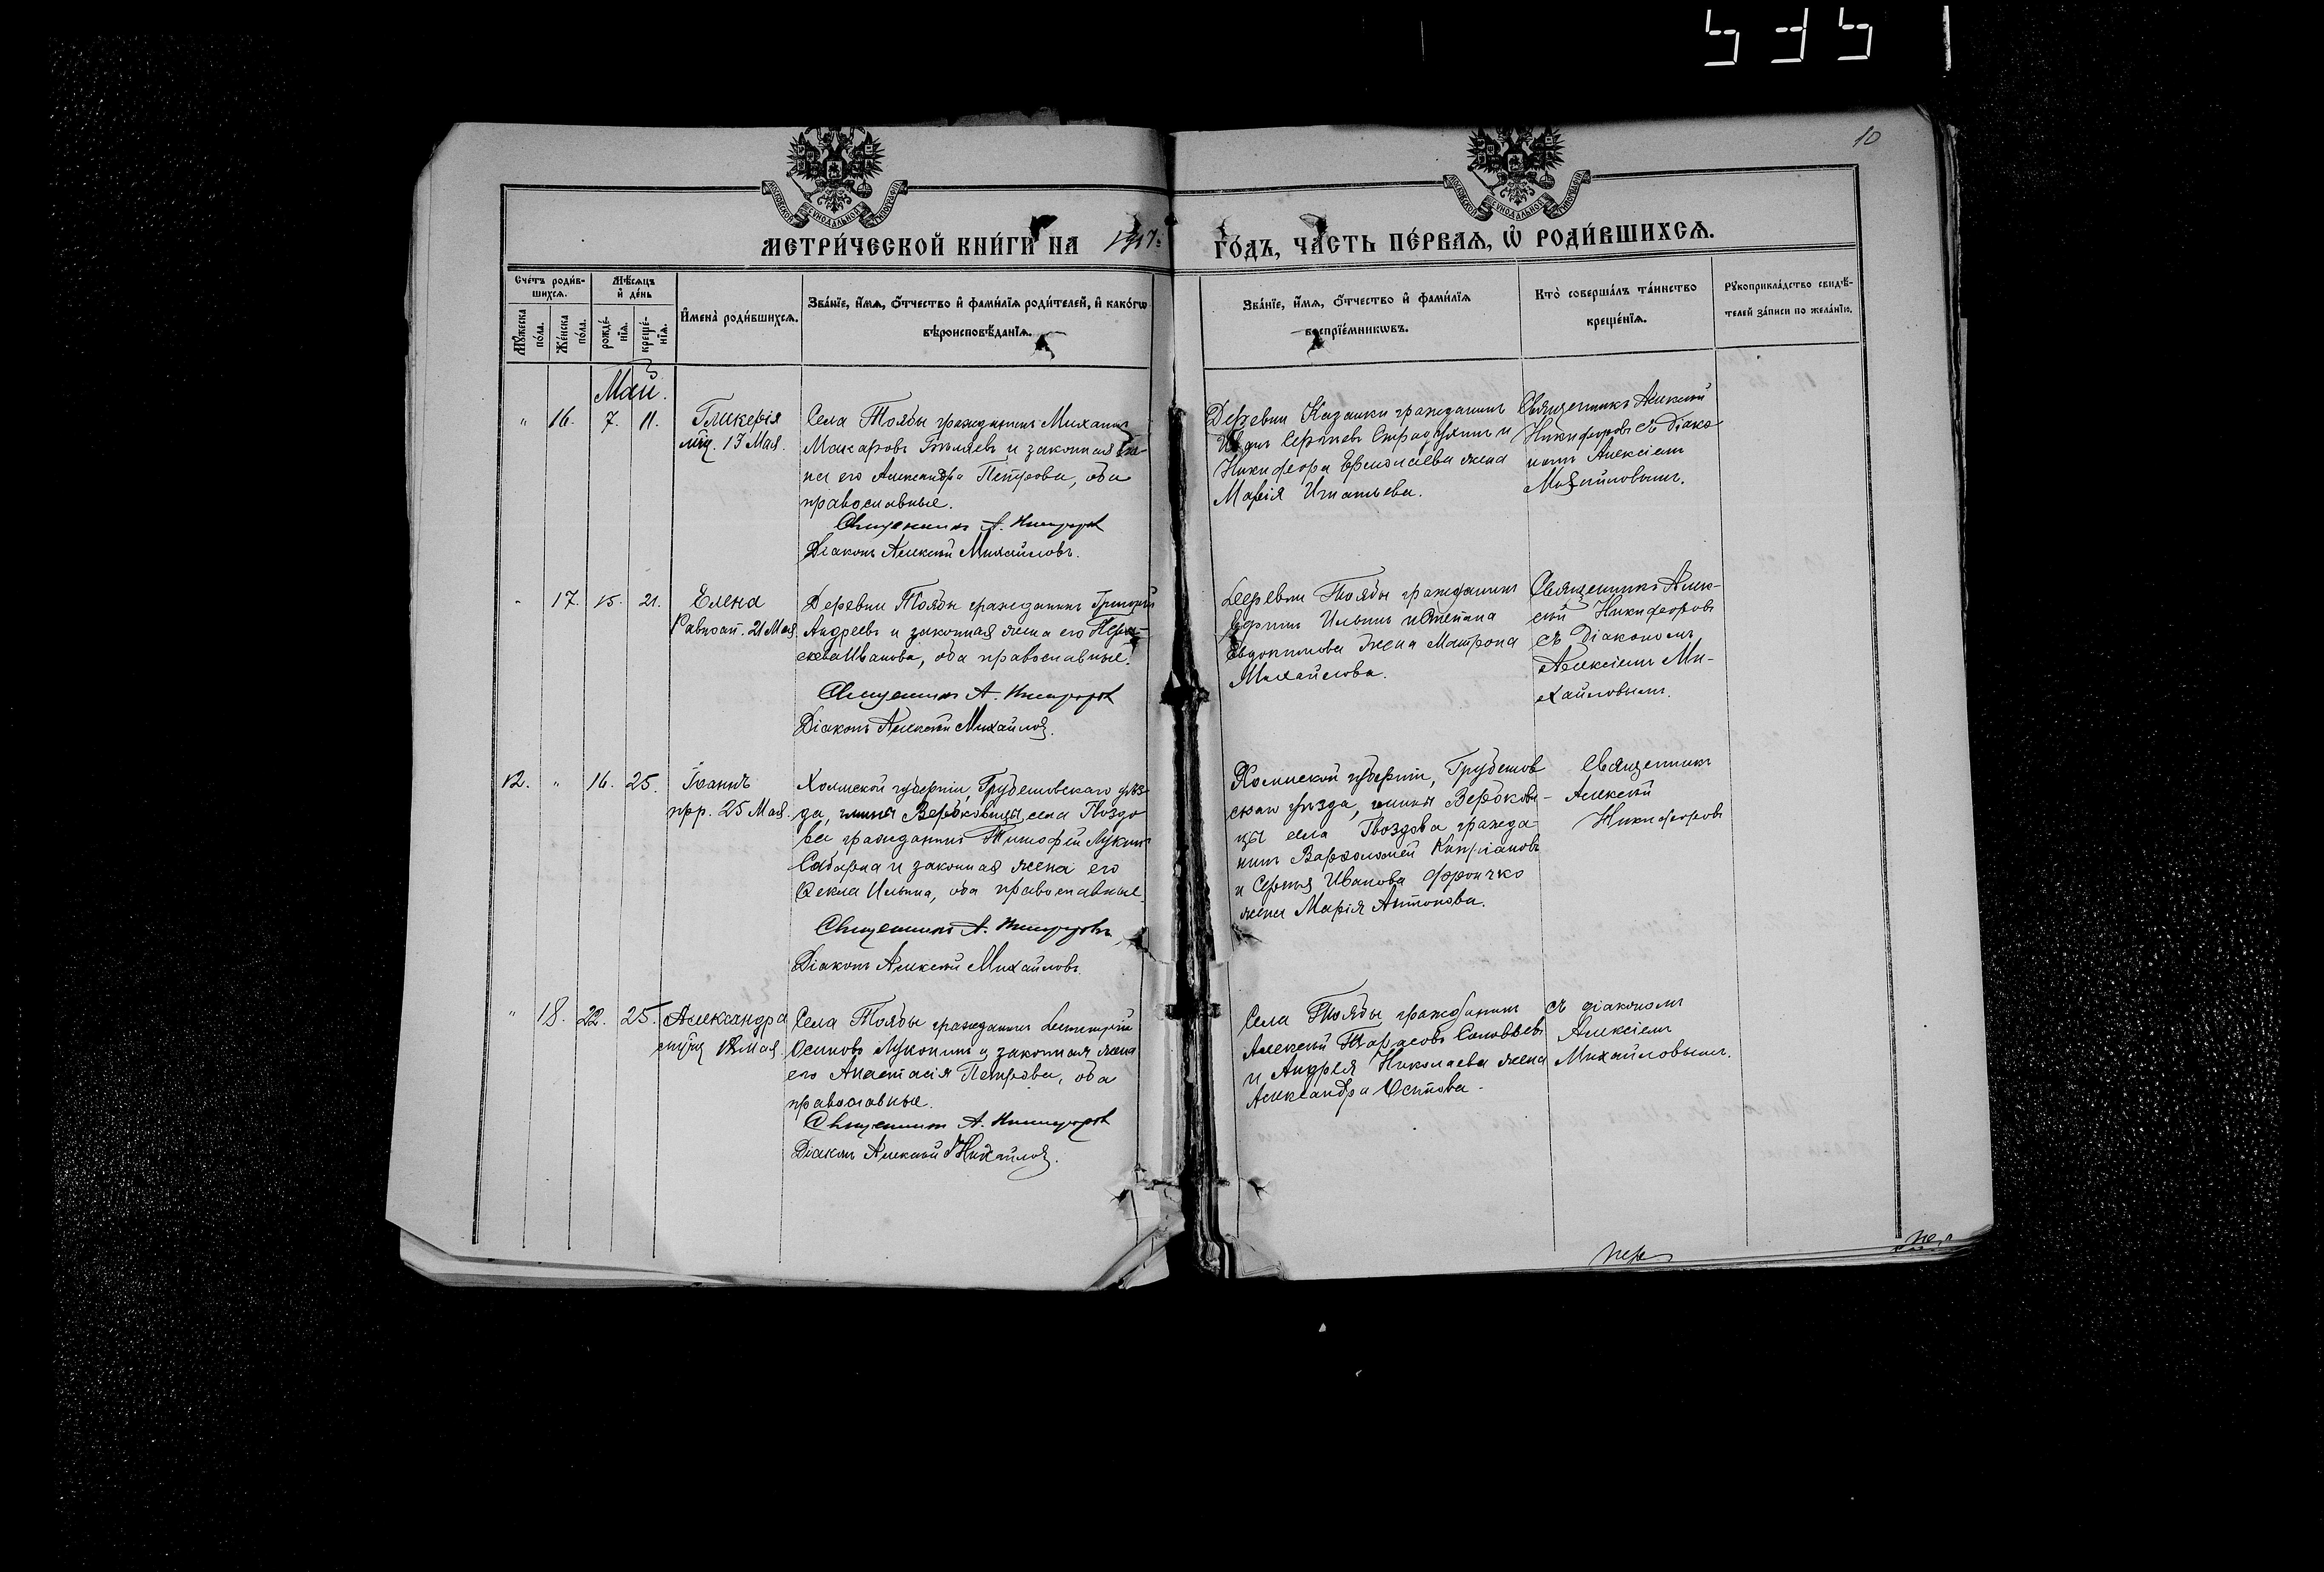 535
10
МОСКОВСКОЙ СѴНОДАЛЬНОЙ ТИПОГРАФІИ
МОСКОВСКОЙ СѴНОДАЛЬНОЙ ТИПОГРАФІИ
МЕТРИ́ЧЕСКОЙ КНИ́ГИ НА 1917 г.
ГО́ДЪ, ЧА́СТЬ ПЕ́РВАѦ, Ѡ҆ РОДИ́ВШИХСѦ.
Сче́тъ роди́в-
шихсѧ.
Мꙋ́жеска
по́ла.
Же́нска
по́ла.
Мѣ́сѧцъ
и҆ де́нь
рожде́-
нїѧ.
креще́-
нїѧ.
И҆мена̀ роди́вшихсѧ.
Зва́нїе, и҆́мѧ, ѻ҆́тчество и҆ фами́лїѧ роди́телей, и҆ како́гѡ
вѣроисповѣ́данїѧ.
Зва́нїе, и҆́мѧ, ѻ҆́тчество и҆ фами́лїѧ
воспрїе́мникѡвъ.
Кто̀ соверша́лъ та́инство
креще́нїѧ.
Рꙋкоприкла́дство свидѣ́-
телей за́писи по жела́нїю.
Май.
" 16. 7. 11.
Гликерія
мчц. 13 Мая.
Села Тоябы гражданинъ Михаилъ
Макаровъ Бѣляевъ и законная же-
на его Александра Петрова, оба
православные.
Священникъ А. Никифоровъ
Діаконъ Алексій Михайловъ.
Деревни Казанки гражданинъ
Сергѣевъ и
Никифора Ермолаева жена
Марія Игнатьева.
Священникъ Алексій
Никифоровъ съ діако-
номъ Алексіемъ
Михайловымъ.
" 17. 15. 21.
Елена
Равноап. 21 Мая.
Деревни Тоябы гражданинъ Григорій
Андреевъ и законная жена его Парас-
кева Иванова, оба православные.
Священникъ А. Никифоровъ
Діаконъ Алексій Михайловъ.
Деревни Тоябы гражданинъ
Ефимъ Ильинъ и Степана
Евдокимова жена Матрона
Михайлова.
Священникъ Алек-
сій Никифоровъ
съ діакономъ
Алексіемъ Ми-
хайловымъ.
12. " 16. 25.
Іоаннъ
прр. 25 Мая.
Холмской губерніи, Грубешовскаго уѣз-
да, гмины Вербковицы села Гвоздо-
ва гражданинъ Тимофей Лукинъ
и законная жена его
Ѳекла Ильина, оба православные.
Священникъ А. Никифоровъ
Діаконъ Алексій Михайловъ.
Холмской губерніи, Грубешов-
скаго уѣзда, гмины Вербкови-
цы села Гвоздова гражда-
нинъ Варѳоломей Кипріановъ
и Сергѣя Иванова
жена Марія Антонова.
Священникъ
Алексій
Никифоровъ
" 18. 22. 25.
Александра
мчц 18 Мая.
Села Тоябы гражданинъ Димитрій
Осиповъ Лукинъ и законная жена
его Анастасія Петрова, оба
православные.
Священникъ А. Никифоровъ
Діаконъ Алексій Михайловъ.
Села Тоябы гражданинъ
Алексій Тарасовъ Соловьевъ
и Андрея Николаева жена
Александра Осипова.
съ діакономъ
Алексіемъ
Михайловымъ.